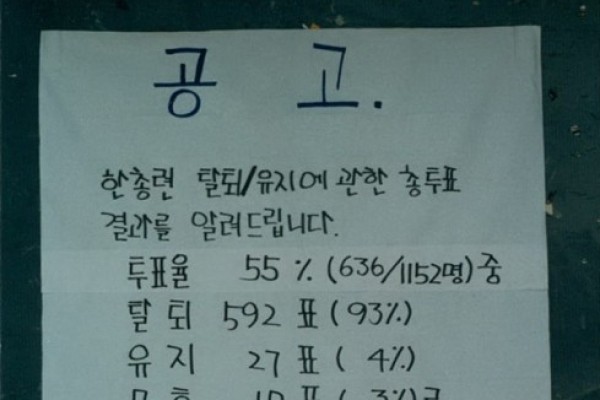 공 고.
한총련 탈퇴/유지에 관한 총투표
결과를 알려드립니다.
투표율 55 % (636/1152명) 중
탈 퇴 592 표 ( 93%)
유 지 27 표 ( 4%)